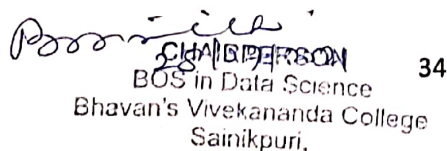 CHAIRPERSON
34
BOS in Data Science
Bhavan's Vivekananda College
Sainikpuri.